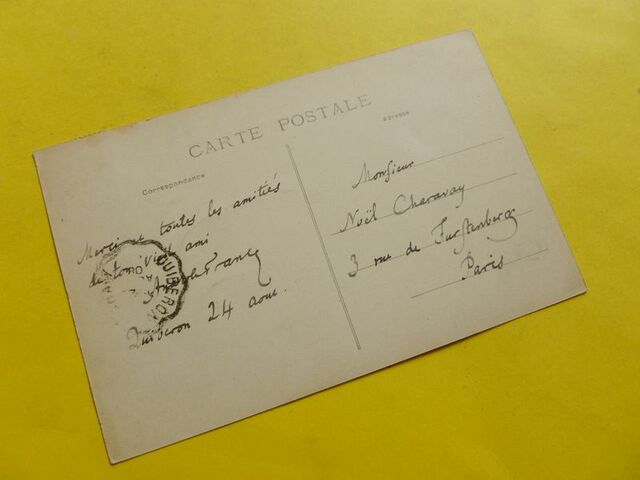 CARTE POSTALE
Correspondance
Adresse
Merci et toutes les amitiés
de ton vieil ami
Anatole France
Quiberon 24 aout.
Monsieur
Noël Charavay
3 rue de Furstenberg
Paris
QUIBERON